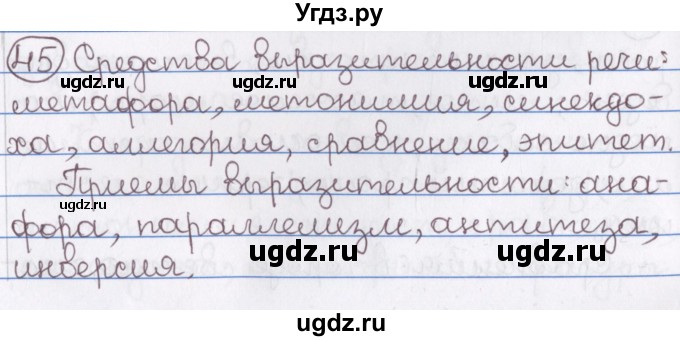 Угдз.ру
45 Средства выразительности речи:
ugdz.ru ugdz.ru
метафора, метонимия, синекдо-
ха, аллегория, сравнение, эпитет.
ugdz.ru ugdz.ru
Приемы выразительности: ана-
ugdz.ru
фора, параллелизм, антитеза,
ugdz.ru ugdz.ru
инверсия.
ugdz.ru